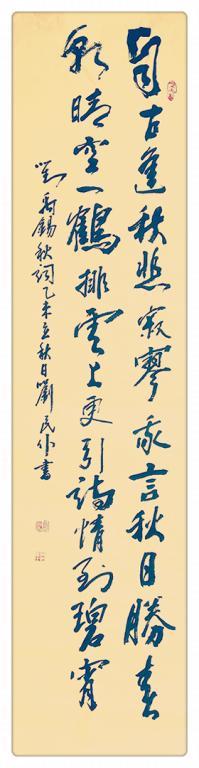 自古逢秋悲寂寥我言秋日勝春
朝晴空一鶴排雲上更引詩情到碧霄
劉禹錫秋詞乙未立秋日劉民作書